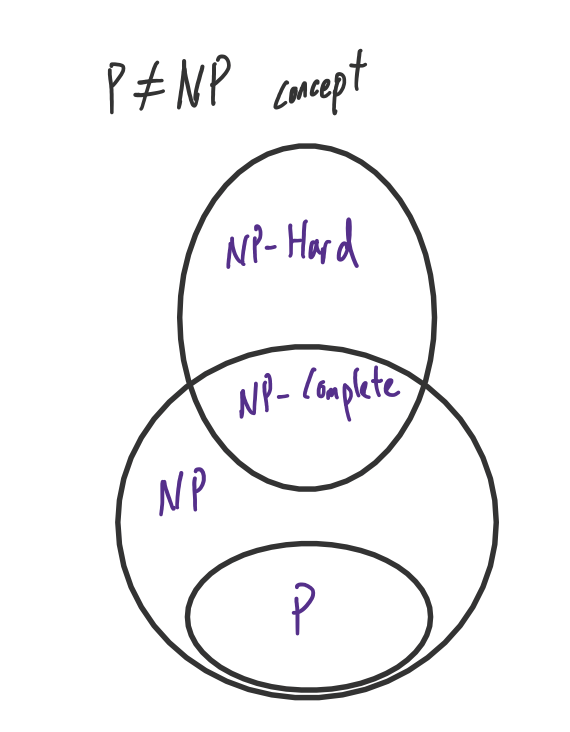 P ≠ NP concept
NP-Hard
NP-Complete
NP
P